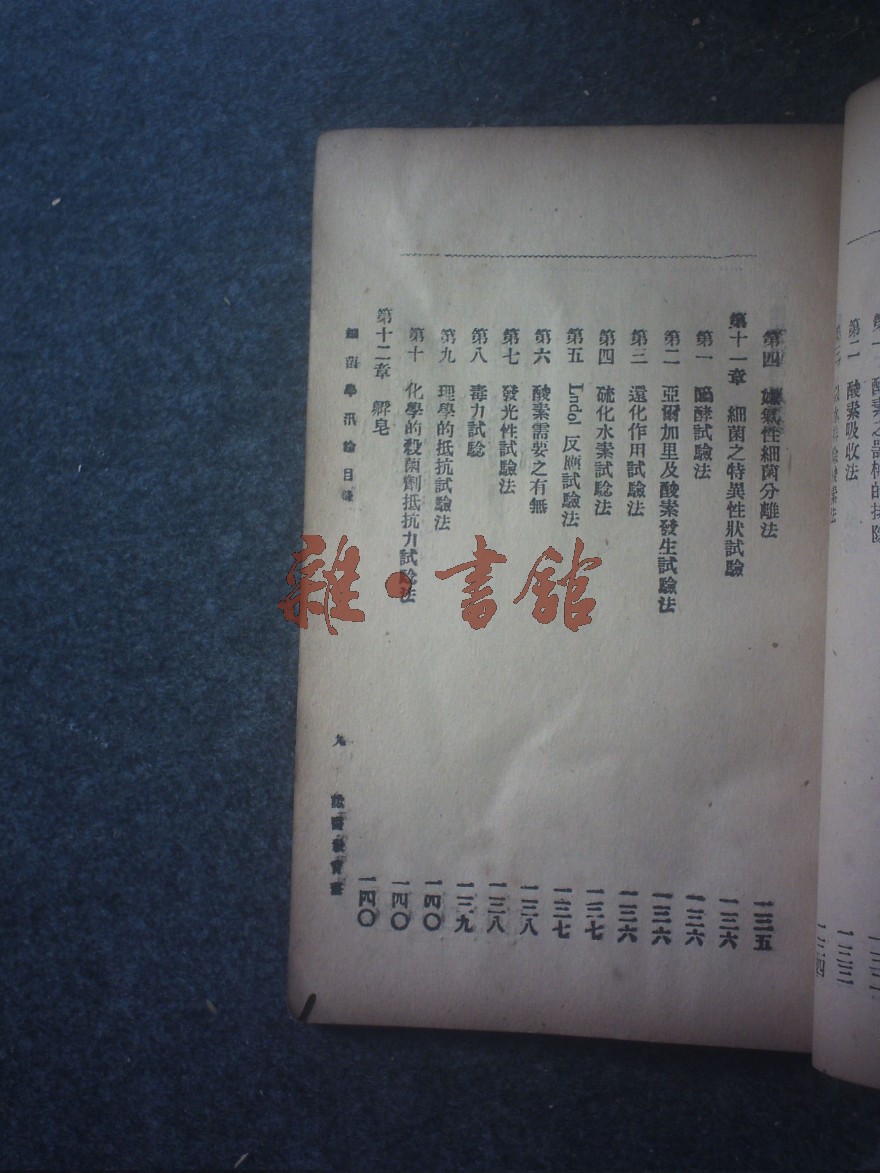 第一 酸素之器械的排除
第二 酸素吸收法
一三三
一三四
第四 嫌氣性細菌分離法 一三五
第十一章 細菌之特異性狀試驗 一三六
第一 釀酵試驗法 一三六
第二 亞爾加里及酸素發生試驗法 一三六
第三 還化作用試驗法 一三六
第四 硫化水素試驗法 一三七
第五 Lndol 反應試驗法 一三七
第六 酸素需要之有無 一三八
第七 發光性試驗法 一三八
第八 毒力試驗 一三九
第九 理學的抵抗試驗法 一四〇
第十 化學的殺菌劑抵抗力試驗法 一四〇
第十二章 癬皂 一四〇
細菌學汎論目錄
九
雜·書館